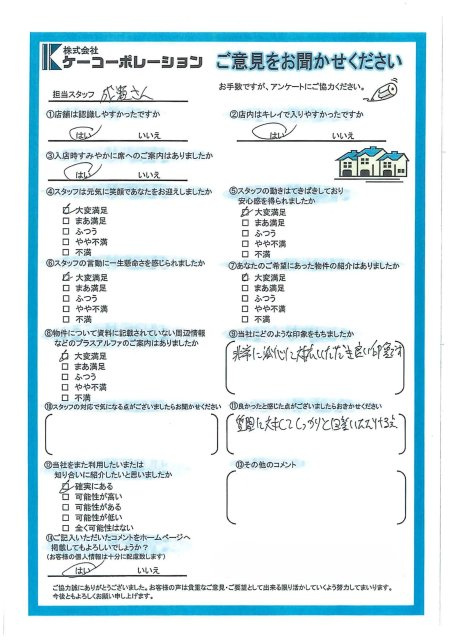 株式会社
ケーコーポレーション
ご意見をお聞かせください
担当スタッフ 成瀬さん
お手数ですが、アンケートにご協力ください。
①店舗は認識しやすかったですか
はい いいえ
②店内はキレイで入りやすかったですか
はい いいえ
③入店時すみやかに席へのご案内はありましたか
はい いいえ
④スタッフは元気に笑顔であなたをお迎えしましたか
大変満足
まあ満足
ふつう
やや不満
不満
⑤スタッフの動きはてきぱきしており
安心感を得られましたか
大変満足
まあ満足
ふつう
やや不満
不満
⑥スタッフの言動に一生懸命さを感じられましたか
大変満足
まあ満足
ふつう
やや不満
不満
⑦あなたのご希望にあった物件の紹介はありましたか
大変満足
まあ満足
ふつう
やや不満
不満
⑧物件について資料に記載されていない周辺情報
などのプラスアルファのご案内はありましたか
大変満足
まあ満足
ふつう
やや不満
不満
⑨当社にどのような印象をもちましたか
非常に 対応いただき良い印象です
⑩スタッフの対応で気になる点がございましたらお聞かせください
⑪良かったと感じた点がございましたらおきかせください
質問に対してしっかりと回答いただける点
⑫当社をまた利用したいまたは
知り合いに紹介したいと思いましたか
確実にある
可能性が高い
可能性がある
可能性が低い
全く可能性はない
⑬その他のコメント
⑭ご記入いただいたコメントをホームページへ
掲載してもよろしいでしょうか?
(お客様の個人情報は十分に配慮致します)
はい いいえ
ご協力誠にありがとうございました。お客様の声は貴重なご意見・ご要望として出来る限り活かしていくよう努力してまいります。
今後ともよろしくお願い申し上げます。